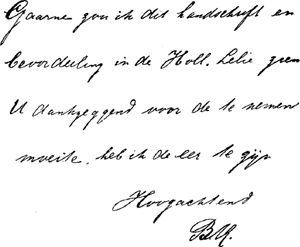 Gaarne zou ik dit handschrift en
bevordeeling in de Holl. Lelie zien
U dankzeggend voor de te nemen
moeite, heb ik de eer te zijn
Hoogachtend